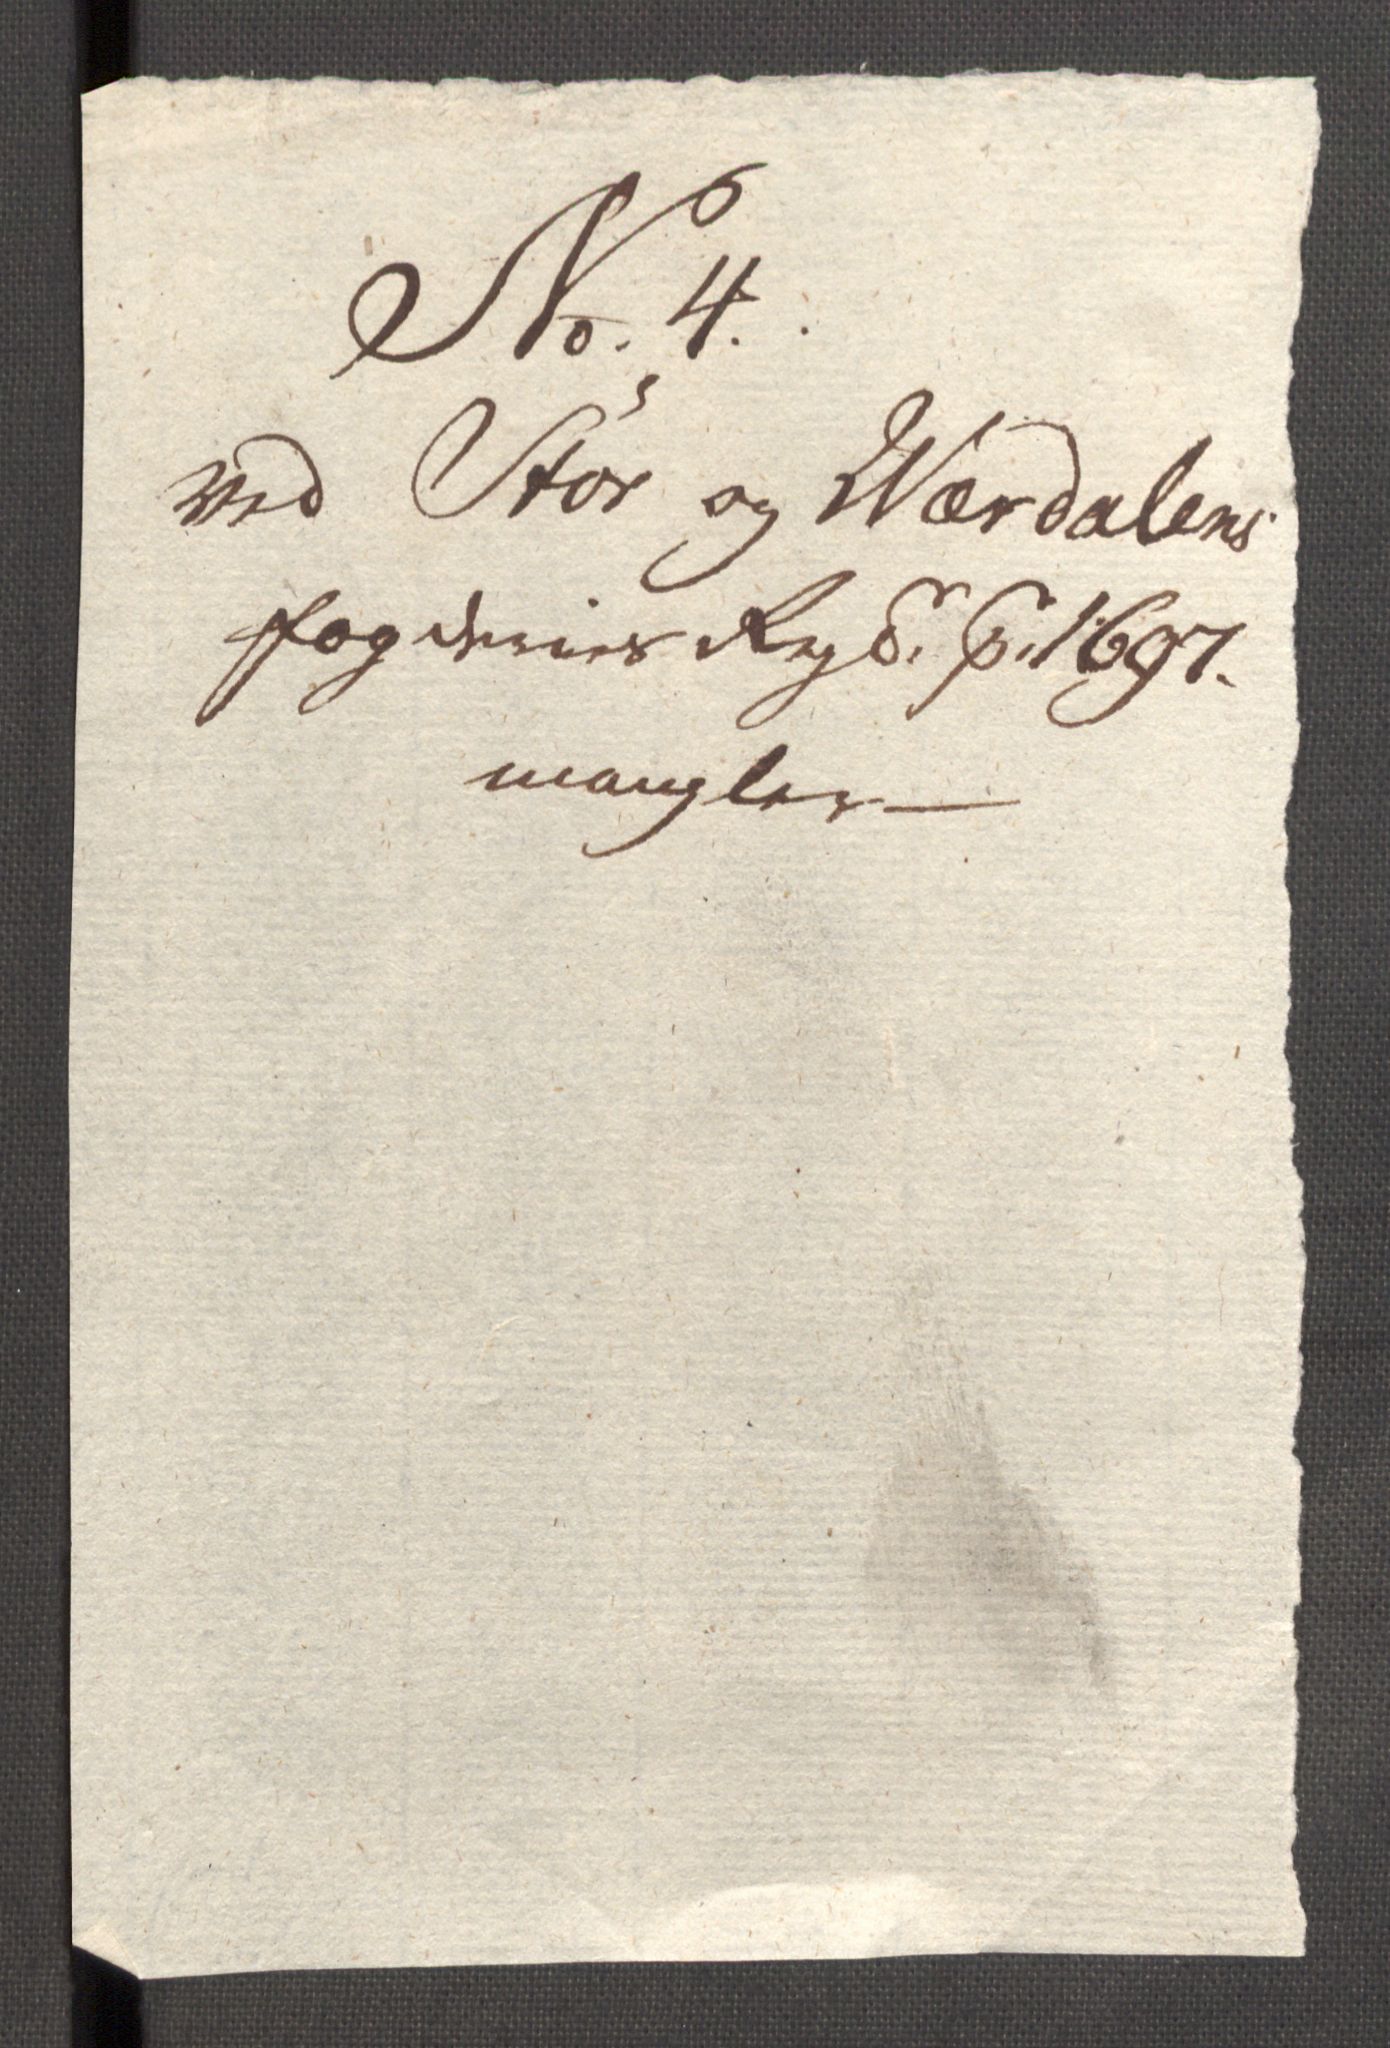 No. 4.
ved Stør og Wærdalens
fogderies Regb. p. 1697.
mangler